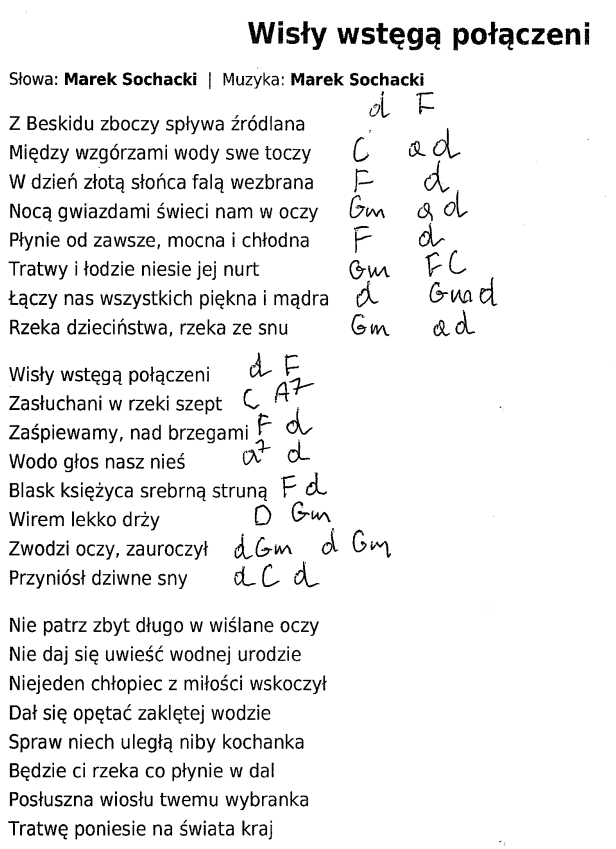 Wisły wstęgą połączeni
Słowa: Marek Sochacki | Muzyka: Marek Sochacki
d F
Z Beskidu zboczy spływa źródlana
Między wzgórzami wody swe toczy C a d
W dzień złotą słońca falą wezbrana F d
Nocą gwiazdami świeci nam w oczy Gm a d
Płynie od zawsze, mocna i chłodna F d
Tratwy i łodzie niesie jej nurt Gm F C
Łączy nas wszystkich piękna i mądra d Gm a d
Rzeka dzieciństwa, rzeka ze snu Gm a d
Wisły wstęgą połączeni d F
Zasłuchani w rzeki szept C A7
Zaśpiewamy, nad brzegami F d
Wodo głos nasz nieś a7 d
Blask księżyca srebrną struną F d
Wirem lekko drży D Gm
Zwodzi oczy, zauroczył d Gm d Gm
Przyniósł dziwne sny d C d
Nie patrz zbyt długo w wiślane oczy
Nie daj się uwieść wodnej urodzie
Niejeden chłopiec z miłości wskoczył
Dał się opętać zaklętej wodzie
Spraw niech uległą niby kochanka
Będzie ci rzeka co płynie w dal
Posłuszna wiosłu twemu wybranka
Tratwę poniesie na świata kraj